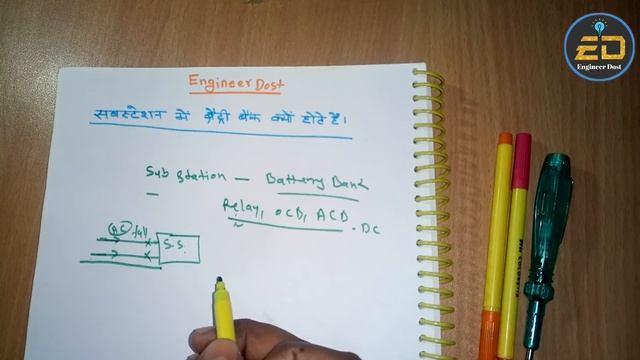 ED
Engineer Dost
Engineer Dost
सबस्टेशन मे बैट्री बैंक क्यों होते है।
Sub Station — Battery Bank
Relay, OCB, ACB - DC
AC fail
S.S.